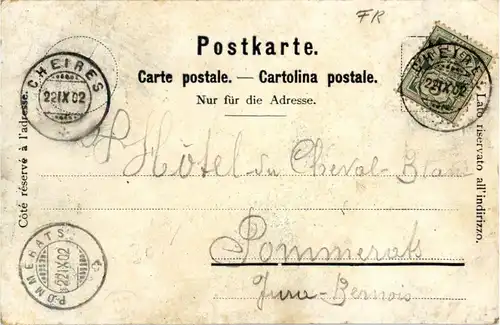 FR
Postkarte.
Carte postale. — Cartolina postale.
Nur für die Adresse.
Côté réservé à l'adresse.
Lato riservato all'indirizzo.
CHEIRES
22 IX 02
CHEIRES
22 IX 02
Hôtel du Cheval-Blanc
Pommerats
Jura-Bernois
POMMERATS
22 IX 02